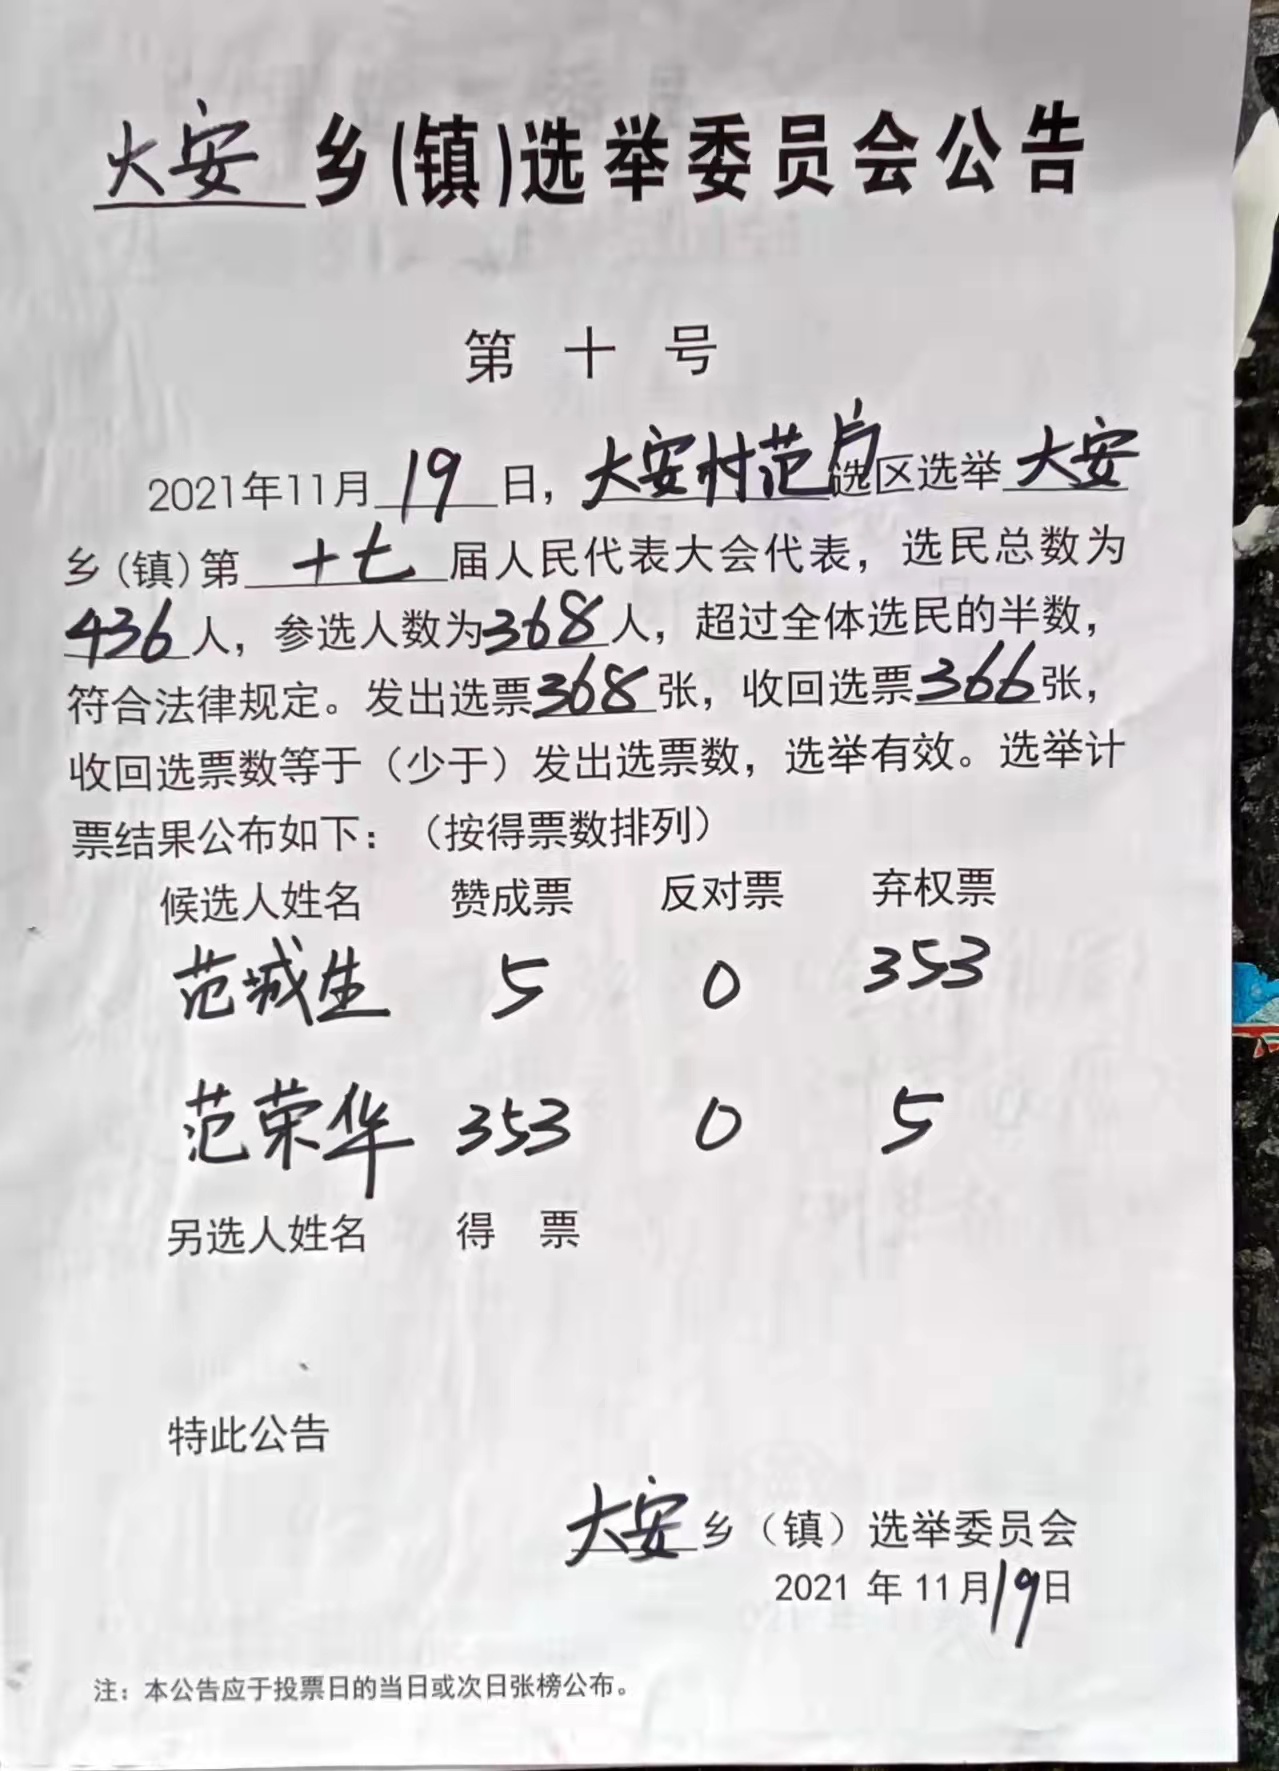 大安乡(镇)选举委员会公告
第十号
2021年11月19日，大安村范卢选区选举大安
乡(镇)第十七届人民代表大会代表，选民总数为
436人，参选人数为368人，超过全体选民的半数，
符合法律规定。发出选票368张，收回选票366张，
收回选票数等于（少于）发出选票数，选举有效。选举计
票结果公布如下：（按得票数排列）
候选人姓名 赞成票 反对票 弃权票
范城生 5 0 353
范荣华 353 0 5
另选人姓名 得票
特此公告
大安乡（镇）选举委员会
2021年11月19日
注：本公告应于投票日的当日或次日张榜公布。